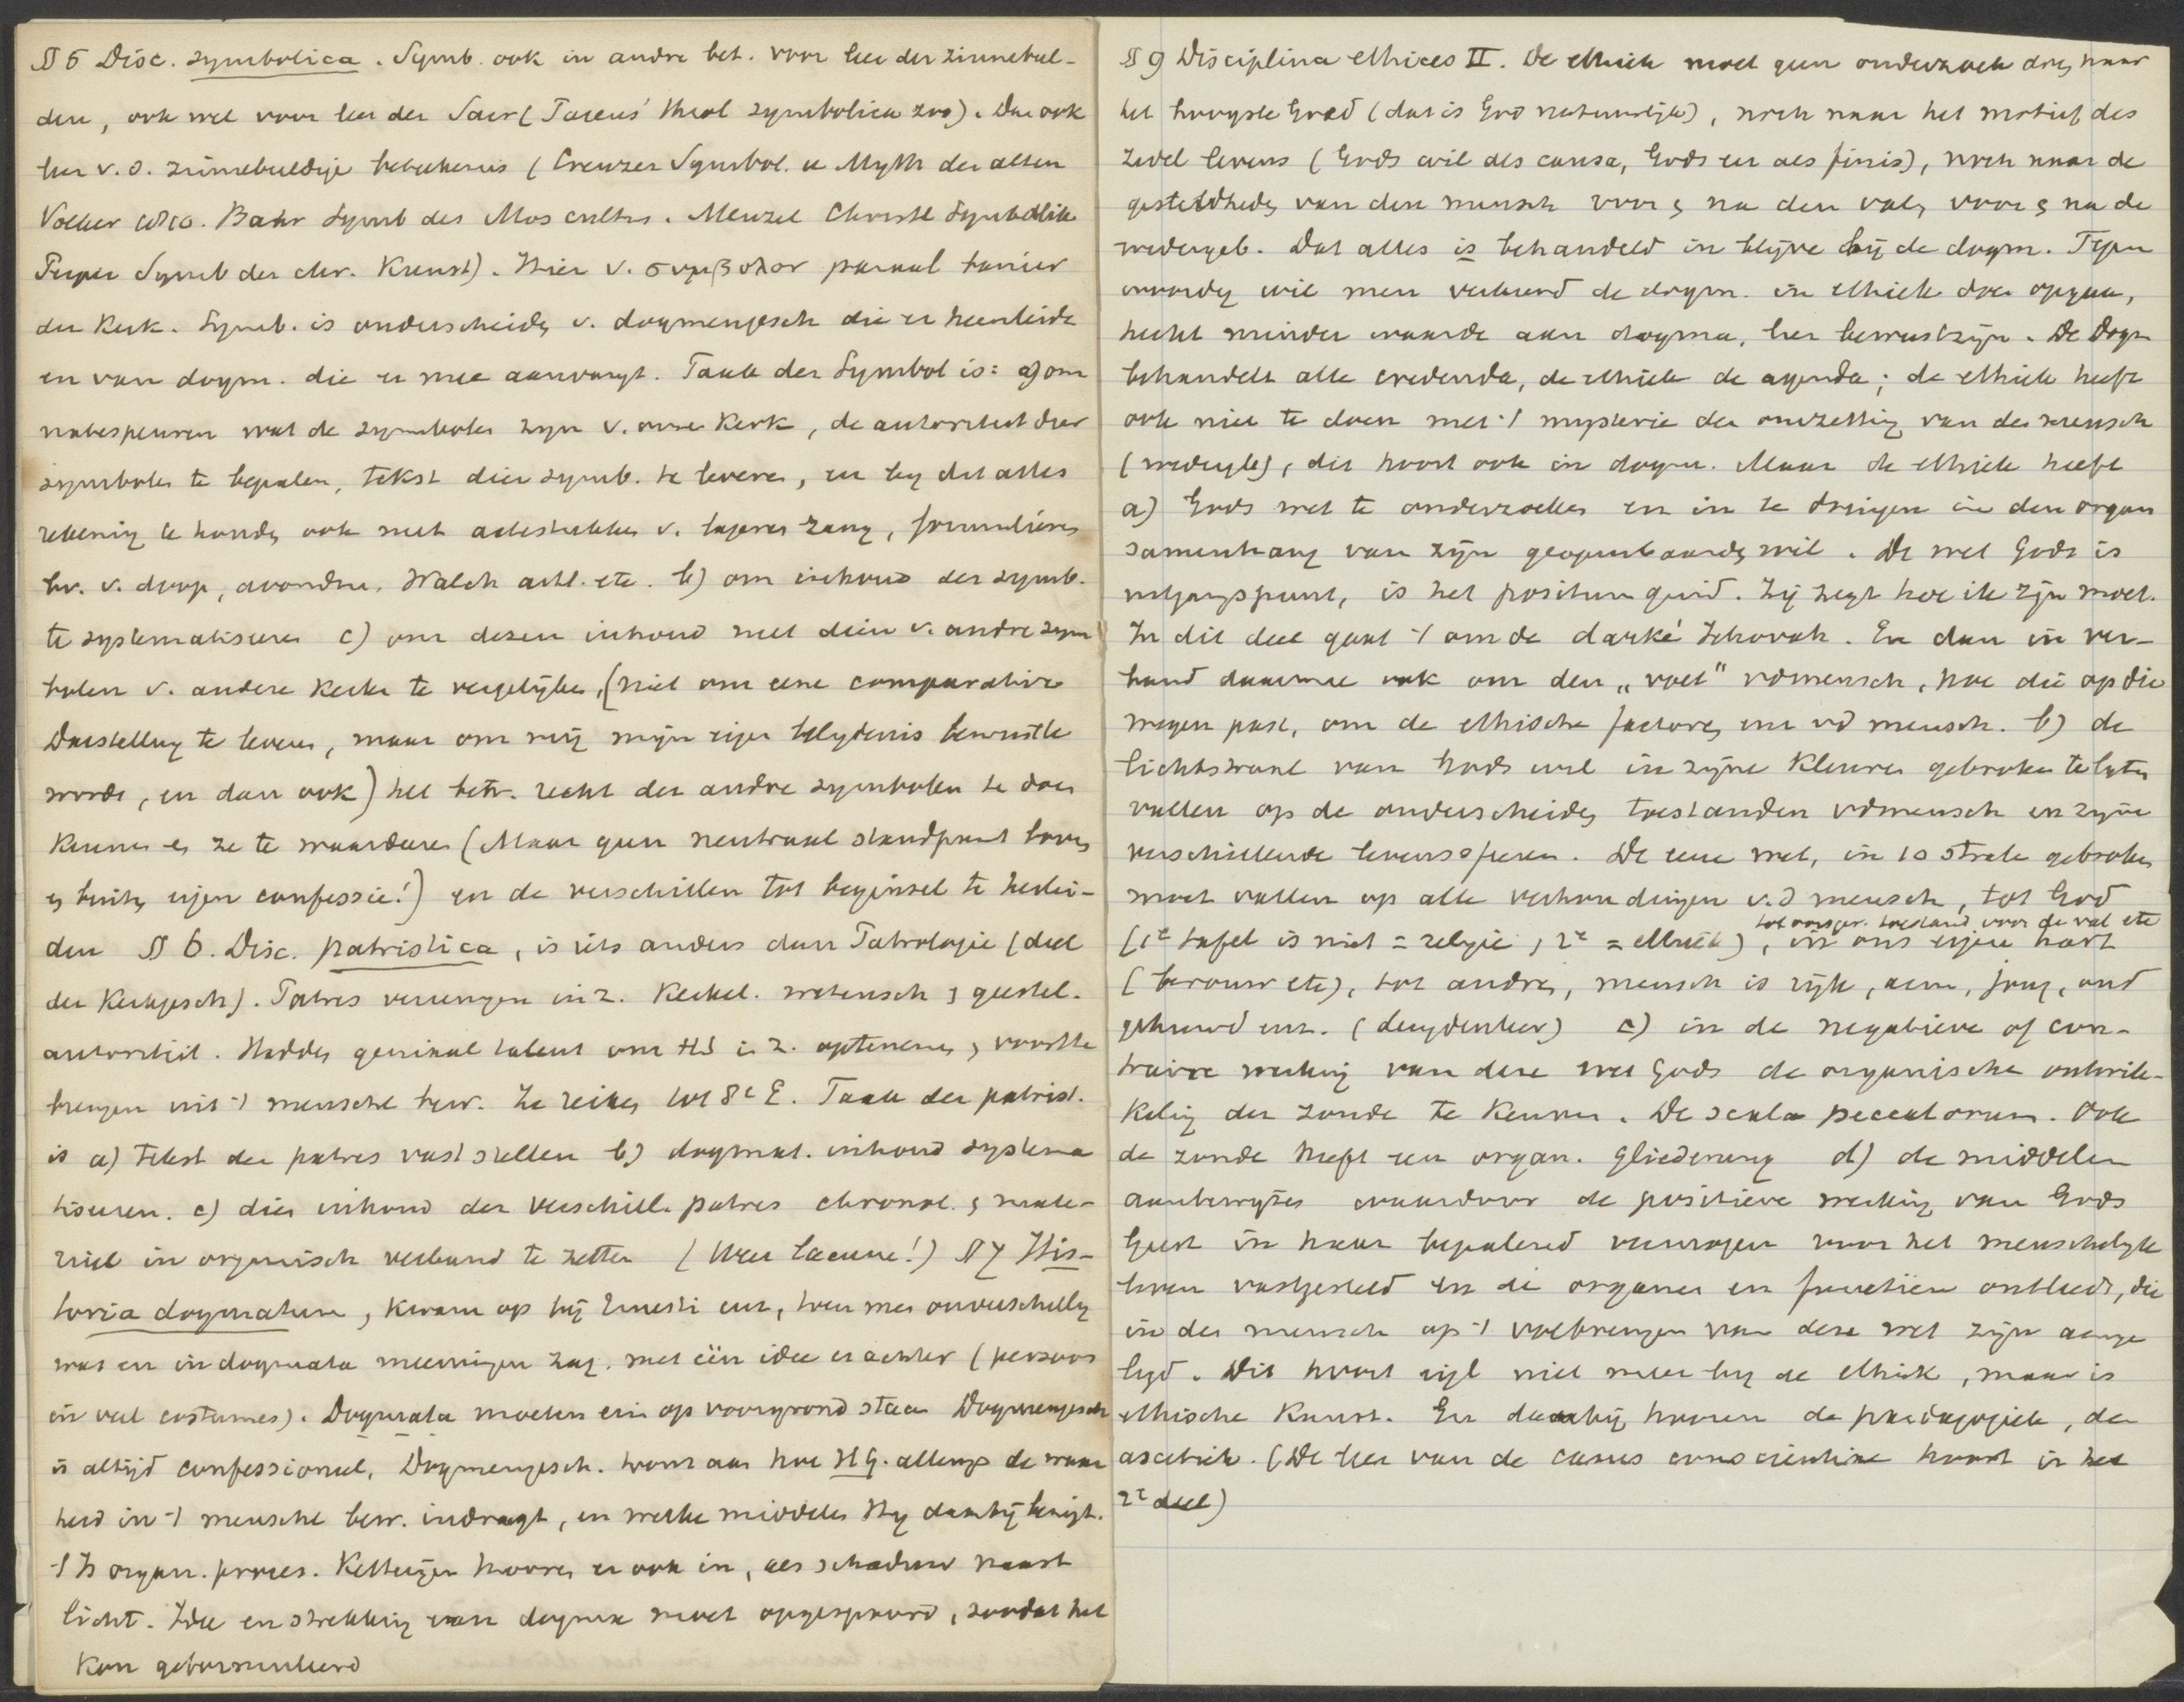 § 5 Disc. symbolica. Symb. ook in andre bet. voor leer der zinnebeel-
den, ook wel voor leer der Sacr (Pareus' theol symbolica zoo). Dan ook
leer v. d. zinnebeeldige beteekenis (Creuzer Symbol. u Myth der alten
Völker 1810. Bahr Symb des Mos cultus. Menzel Christl Symbolik
Piper Symb der chr. Kunst). Hier v. συμβολον banier
der Kerk. Symb. is onderscheiden v. dogmengesch die er heenleidt
en van dogm. die er mee aanvangt. Taak der Symbol is: a) om
natespeuren wat de symbolen zijn v. onze Kerk, de autoriteit dier
symbolen te bepalen, tekst dier symb. te leveren, en bij dit alles
rekening te houden ook met actestukken v. lageren rang, formulieren
bv. v. doop, avondm. Walch etc. b) om inhoud der symb.
te systematiseren c) om dezen inhoud met dien v. andre sym
bolen v. andere kerken te vergelijken, (niet om eene comparative
Darstellung te leveren, maar om mij mijn eigen belijdenis bewust te
worden, en dan ook) het betr. recht der andre symbolen te doen
kennen en ze te waarderen (Maar geen neutraal standpunt boven
en buiten eigen confessie!) en de verschillen tot beginsel te herlei-
den § 6. Disc. patristica, is iets anders dan Patrologie (deel
der Kerkgesch). Patres vereenigen in z. Kerkel. wetensch en geestel.
autoriteit. Hadden geniaal talent om HS in z. optenemen en voortte
brengen uit 't menschel bew. Ze reiken tot 8e E. Taak der patrist.
is a) tekst der patres vaststellen b) dogmat. inhoud systema
tiseeren. c) dien inhoud der verschill. patres chronol. en mate-
rieel in organisch verband te zetten (Hier lacune!) § 7 His-
toria dogmatum, kwam op bij Ernesti enz, toen men onverschillig
was en in dogmata meeningen zag. met één idee er achter (persoon
in veel costumes). Dogmata moeten erin op voorgrond staan Dogmengesch
is altijd confessioneel, Dogmengesch. toont aan hoe HG. allengs de waar
heid in 't menschel bew. indraagt, en welke middelen Hij daarbij bezigt.
't Is organ. proces. Ketterijen hooren er ook in, als schaduw naast
licht. Idee en strekking van dogma moet opgespoord, zoodat het
kan geformuleerd
§ 9 Disciplina ethices II. De ethiek moet geen onderzoek doen naar
het hoogste Goed (dat is God natuurlijk), noch naar het motief des
zedel levens (Gods wil als causa, Gods eer als finis), noch naar de
gesteldheden van den mensch voor en na den val, voor en na de
wedergeb. Dat alles is behandeld in bij de dogm. Tegen
woordig wil men verkeerd de dogm. in ethiek doen opgaan,
hecht minder waarde aan dogma, leer bewustzijn. De Dogm
behandelt alle credenda, de ethiek de agenda; de ethiek heeft
ook niet te doen met 't mysterie der omzetting van den mensch
(wedergeb), dit hoort ook in dogm. Maar de ethiek heeft
a) Gods wet te onderzoeken en in te dringen in den organ
samenhang van zijn geopenbaarden wil. De wet Gods is
uitgangspunt, is het positum quid. Zij zegt hoe ik zijn moet.
In dit deel gaat 't om de darké Jehovah. En dan in ver-
band daarmee ook om den „voet" vdmensch, hoe die op die
wegen past, om de ethische factoren enz vd mensch. b) de
lichtstraal van Gods wil in zijne kleuren gebroken te laten
vallen op de onderscheiden toestanden vdmensch en zijne
verschillende levenssferen. De eene wet, in 10 stralen gebroken
moet vallen op alle verhoudingen v.d mensch, tot God
(1e tafel is niet = religie, 2e = ethiek), tot oorspr. toestand voor de val etc in ons eigen hart
(berouw etc), tot andren, mensch is rijk, arm, jong, oud
gehuwd enz. (deugdenleer) c) in de negatieve of con-
traire werking van deze wet Gods de organische ontwik-
keling der zonde te kennen. De scala peccatorum. Ook
de zonde heeft een organ. Gliederung d) de middelen
aantewijzen waardoor de positieve werking van Gods
Geest in haar bepalend vermogen voor het menschelijk
leven vastgesteld en de organen en functiën ontleedt, die
in den mensch op 't volbrengen van deze wet zijn aange
legd. Dit hoort eigl niet meer bij de ethiek, maar is
ethische Kunst. En daarbij hooren de paedagogiek, de
ascetiek. (De leer van de casus conscientiae hoort in het
2e deel)